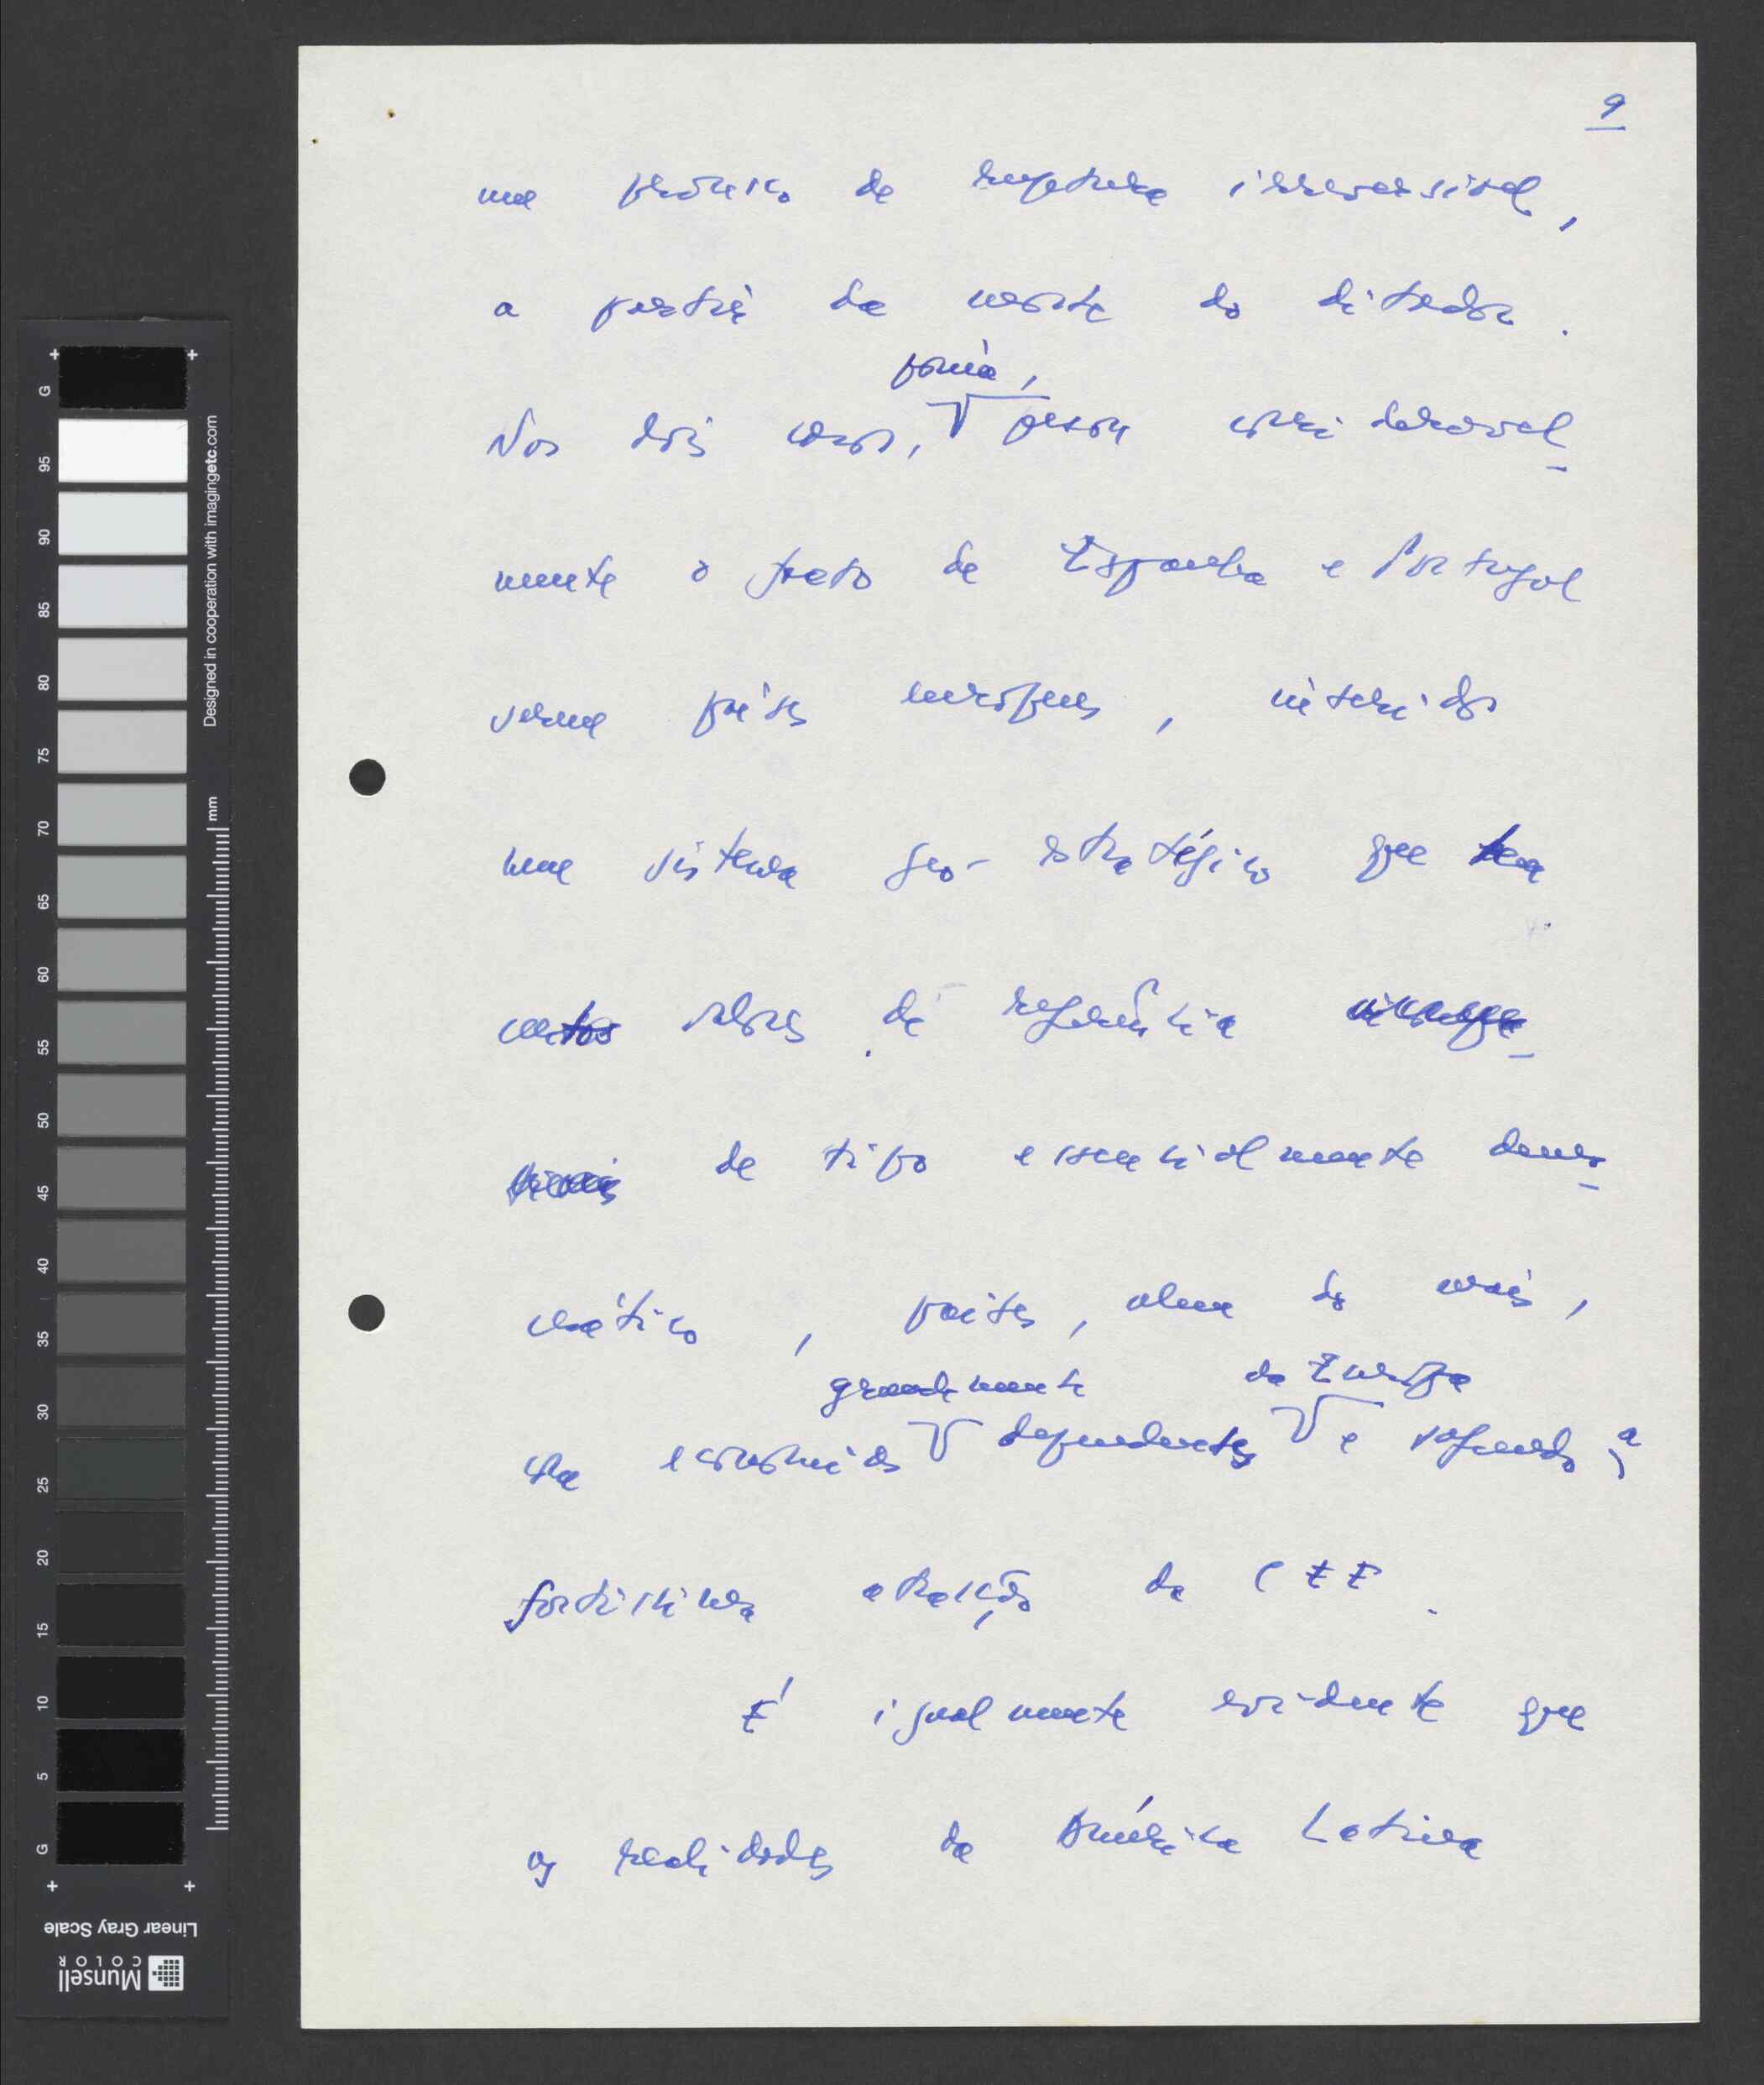 9
um processo de ruptura irreversível,
a partir da morte do ditador.
porém,
Nos dois casos, pesou consideravel-
mente o facto de Espanha e Portugal
serem países europeus, inseridos
num sistema geo-estratégico que tem
valores de referência
de tipo essencialmente demo-
crático, países, além do mais,
grandemente da Europa
com economias dependentes e sofrendo a
fortíssima atracção da CEE.
É igualmente evidente que
as realidades da América Latina
G
95
90
85
80
75
70
65
60
55
50
45
40
35
30
25
20
15
10
5
G
mm
Designed in cooperation with imagingetc.com
Linear Gray Scale
Munsell
COLOR